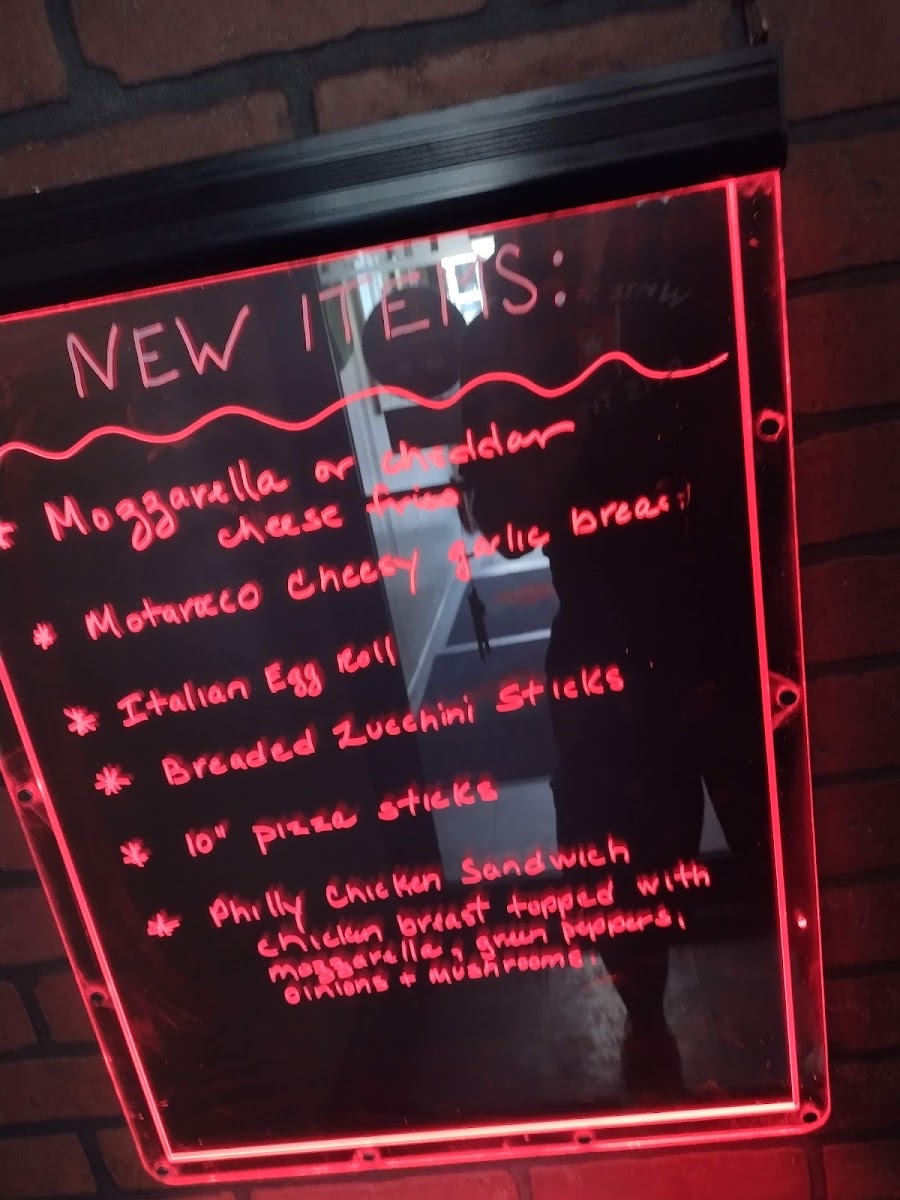 NEW ITEMS:
* Mozzarella or cheddar
cheese fries
* Motarocco Cheesy garlic bread
* Italian Egg Roll
* Breaded Zucchini Sticks
* 10" pizza sticks
* Philly Chicken Sandwich
chicken breast topped with
mozzarella, green peppers,
oinions + mushrooms.